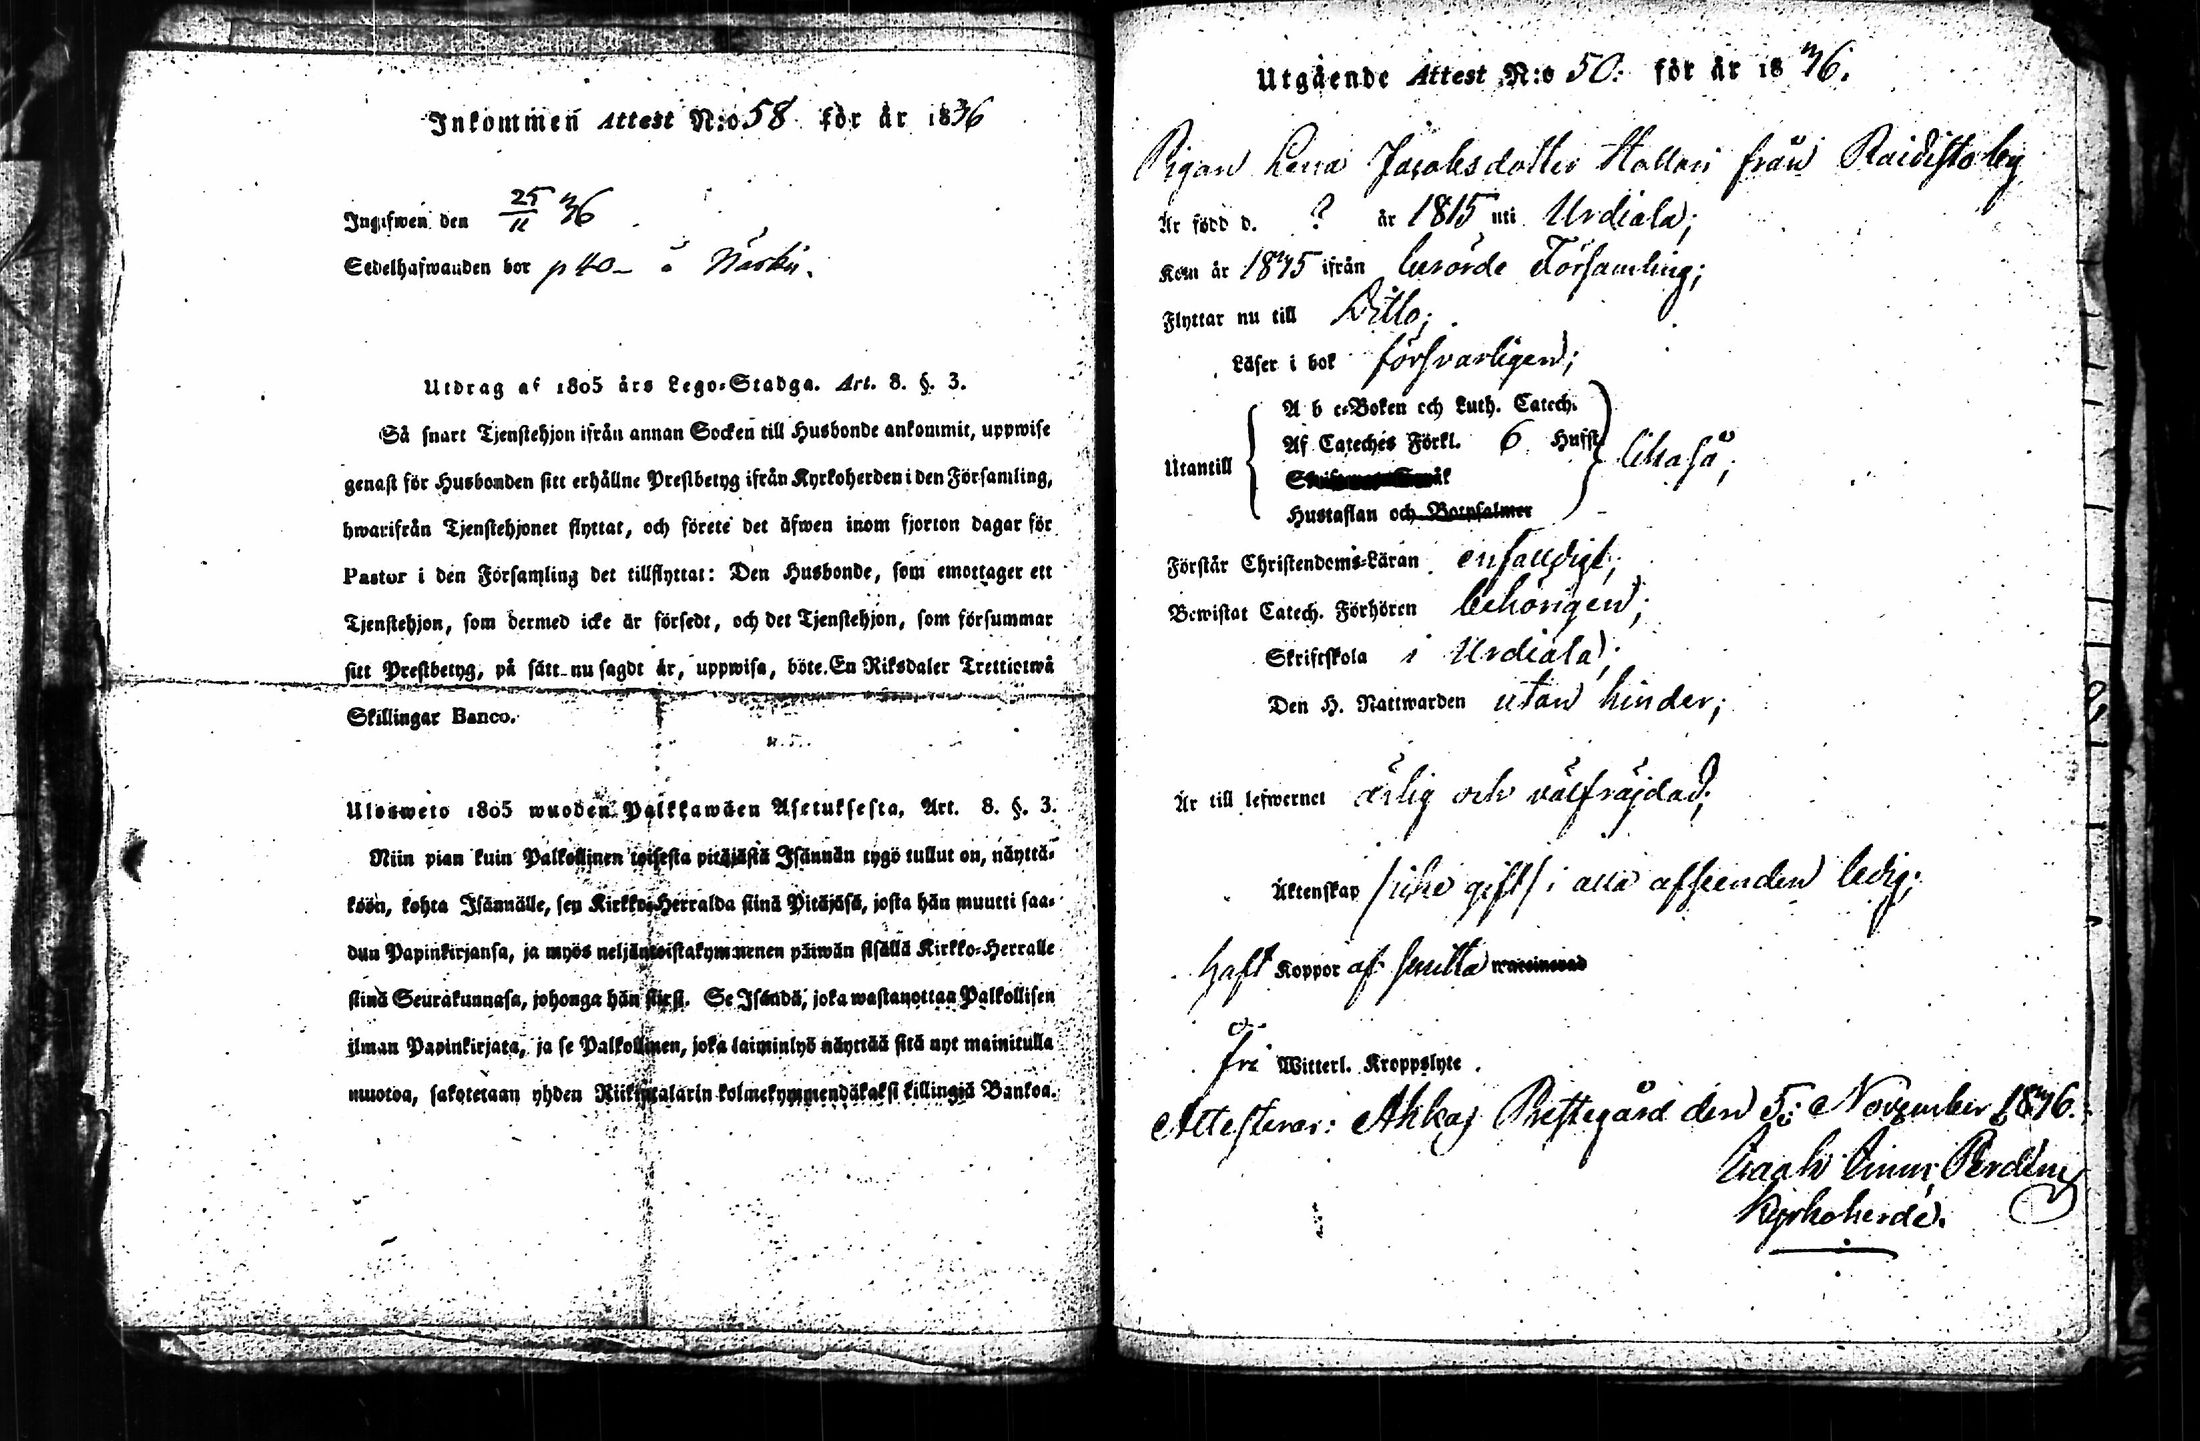 Inkommen Attest N:o 58 för år 1836
Ingifwen den 25/11 36
Sedelhafwanden bor p 40 – å Narku.
Utdrag af 1805 års Lego-Stadga. Art. 8. §. 3.
Så snart Tjenstehjon ifrån annan Socken till Husbonde ankommit, uppwise
genast för Husbonden sitt erhållne Prestbetyg ifrån Kyrkoherden i den Församling,
hwarifrån Tjenstehjonet flyttat, och förete det äfwen inom fjorton dagar för
Pastor i den Församling det tillflyttat: Den Husbonde, som emottager ett
Tjenstehjon, som dermed icke är försedt, och det Tjenstehjon, som försummar
sitt Prestbetyg, på sätt nu sagdt är, uppwisa, böte En Riksdaler Trettiotwå
Skillingar Banco.
Ulosweto 1805 wuoden Palkkawäen Asetuksesta, Art. 8. §. 3.
Niin pian kuin Palkollinen toisesta pitäjästä Isännän tygö tullut on, näyttä-
köön, kohta Isännälle, sen Kirkko-Herralda siinä Pitäjäsä, josta hän muutti saa-
dun Papinkirjansa, ja myös neljäntoistakymmenen päiwän sisällä Kirkko-Herralle
siinä Seurakunnasa, johonga hän siirsi. Se Isändä, joka wastanottaa Palkollisen
ilman Papinkirjata, ja se Palkollinen, joka laiminlyö näyttää sitä nyt mainitulla
muotoa, sakotetaan yhden Riikintalarin kolmekymmendäkaksi killingiä Bankoa.
Utgående Attest N:o 50: för år 1836.
Pigan Lena Jacobsdotter Hallari från Raidistoby
Är född d. ? år 1815 uti Urdiala;
Kom år 1835 ifrån berörde Församling;
Flyttar nu till Ditto;
Läser i bok försvarligen;
Utantill
A b c-Boken och Luth. Catech.
Af Cateches Förkl. 6 Hufst.
Hustaflan och Botpsalmer
likaså;
Förstår Christendoms-Läran enfalldigt;
Bewistat Catech. Förhören behörigen;
Skriftskola i Urdiala;
Den H. Nattwarden utan hinder;
Är till lefwernet ärlig och välfräjdad;
Äktenskap /icke gift/ i alla afseenden ledig;
haft Koppor af smitta waccinerad
fri Witterl. Kroppslyte.
Attesterar: Akkas Prestegård den 5: November 1836.
Perdén
Kyrkoherde.